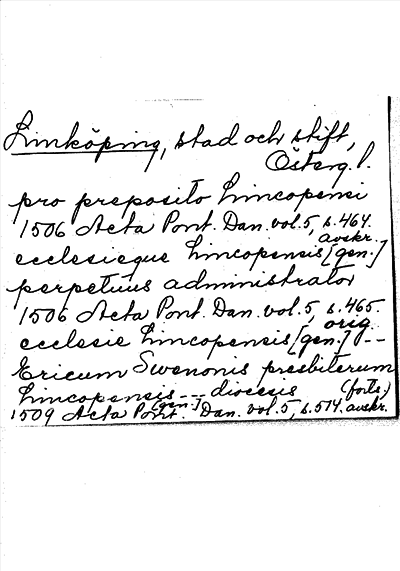 Linköping, stad och stift,
Österg. l.
pro preposito Lincopensi
1506 Acta Pont. Dan. vol. 5, s. 464.
avskr.
ecclesieque Lincopensis [gen.]
perpetuus administrator
1506 Acta Pont. Dan. vol. 5, s. 465.
orig.
ecclesie Lincopensis [gen.] --
Ericum Swenonis presbiterum
Lincopensis [gen.] --- diocesis (forts.)
1509 Acta Pont. Dan. vol. 5, s. 514. avskr.